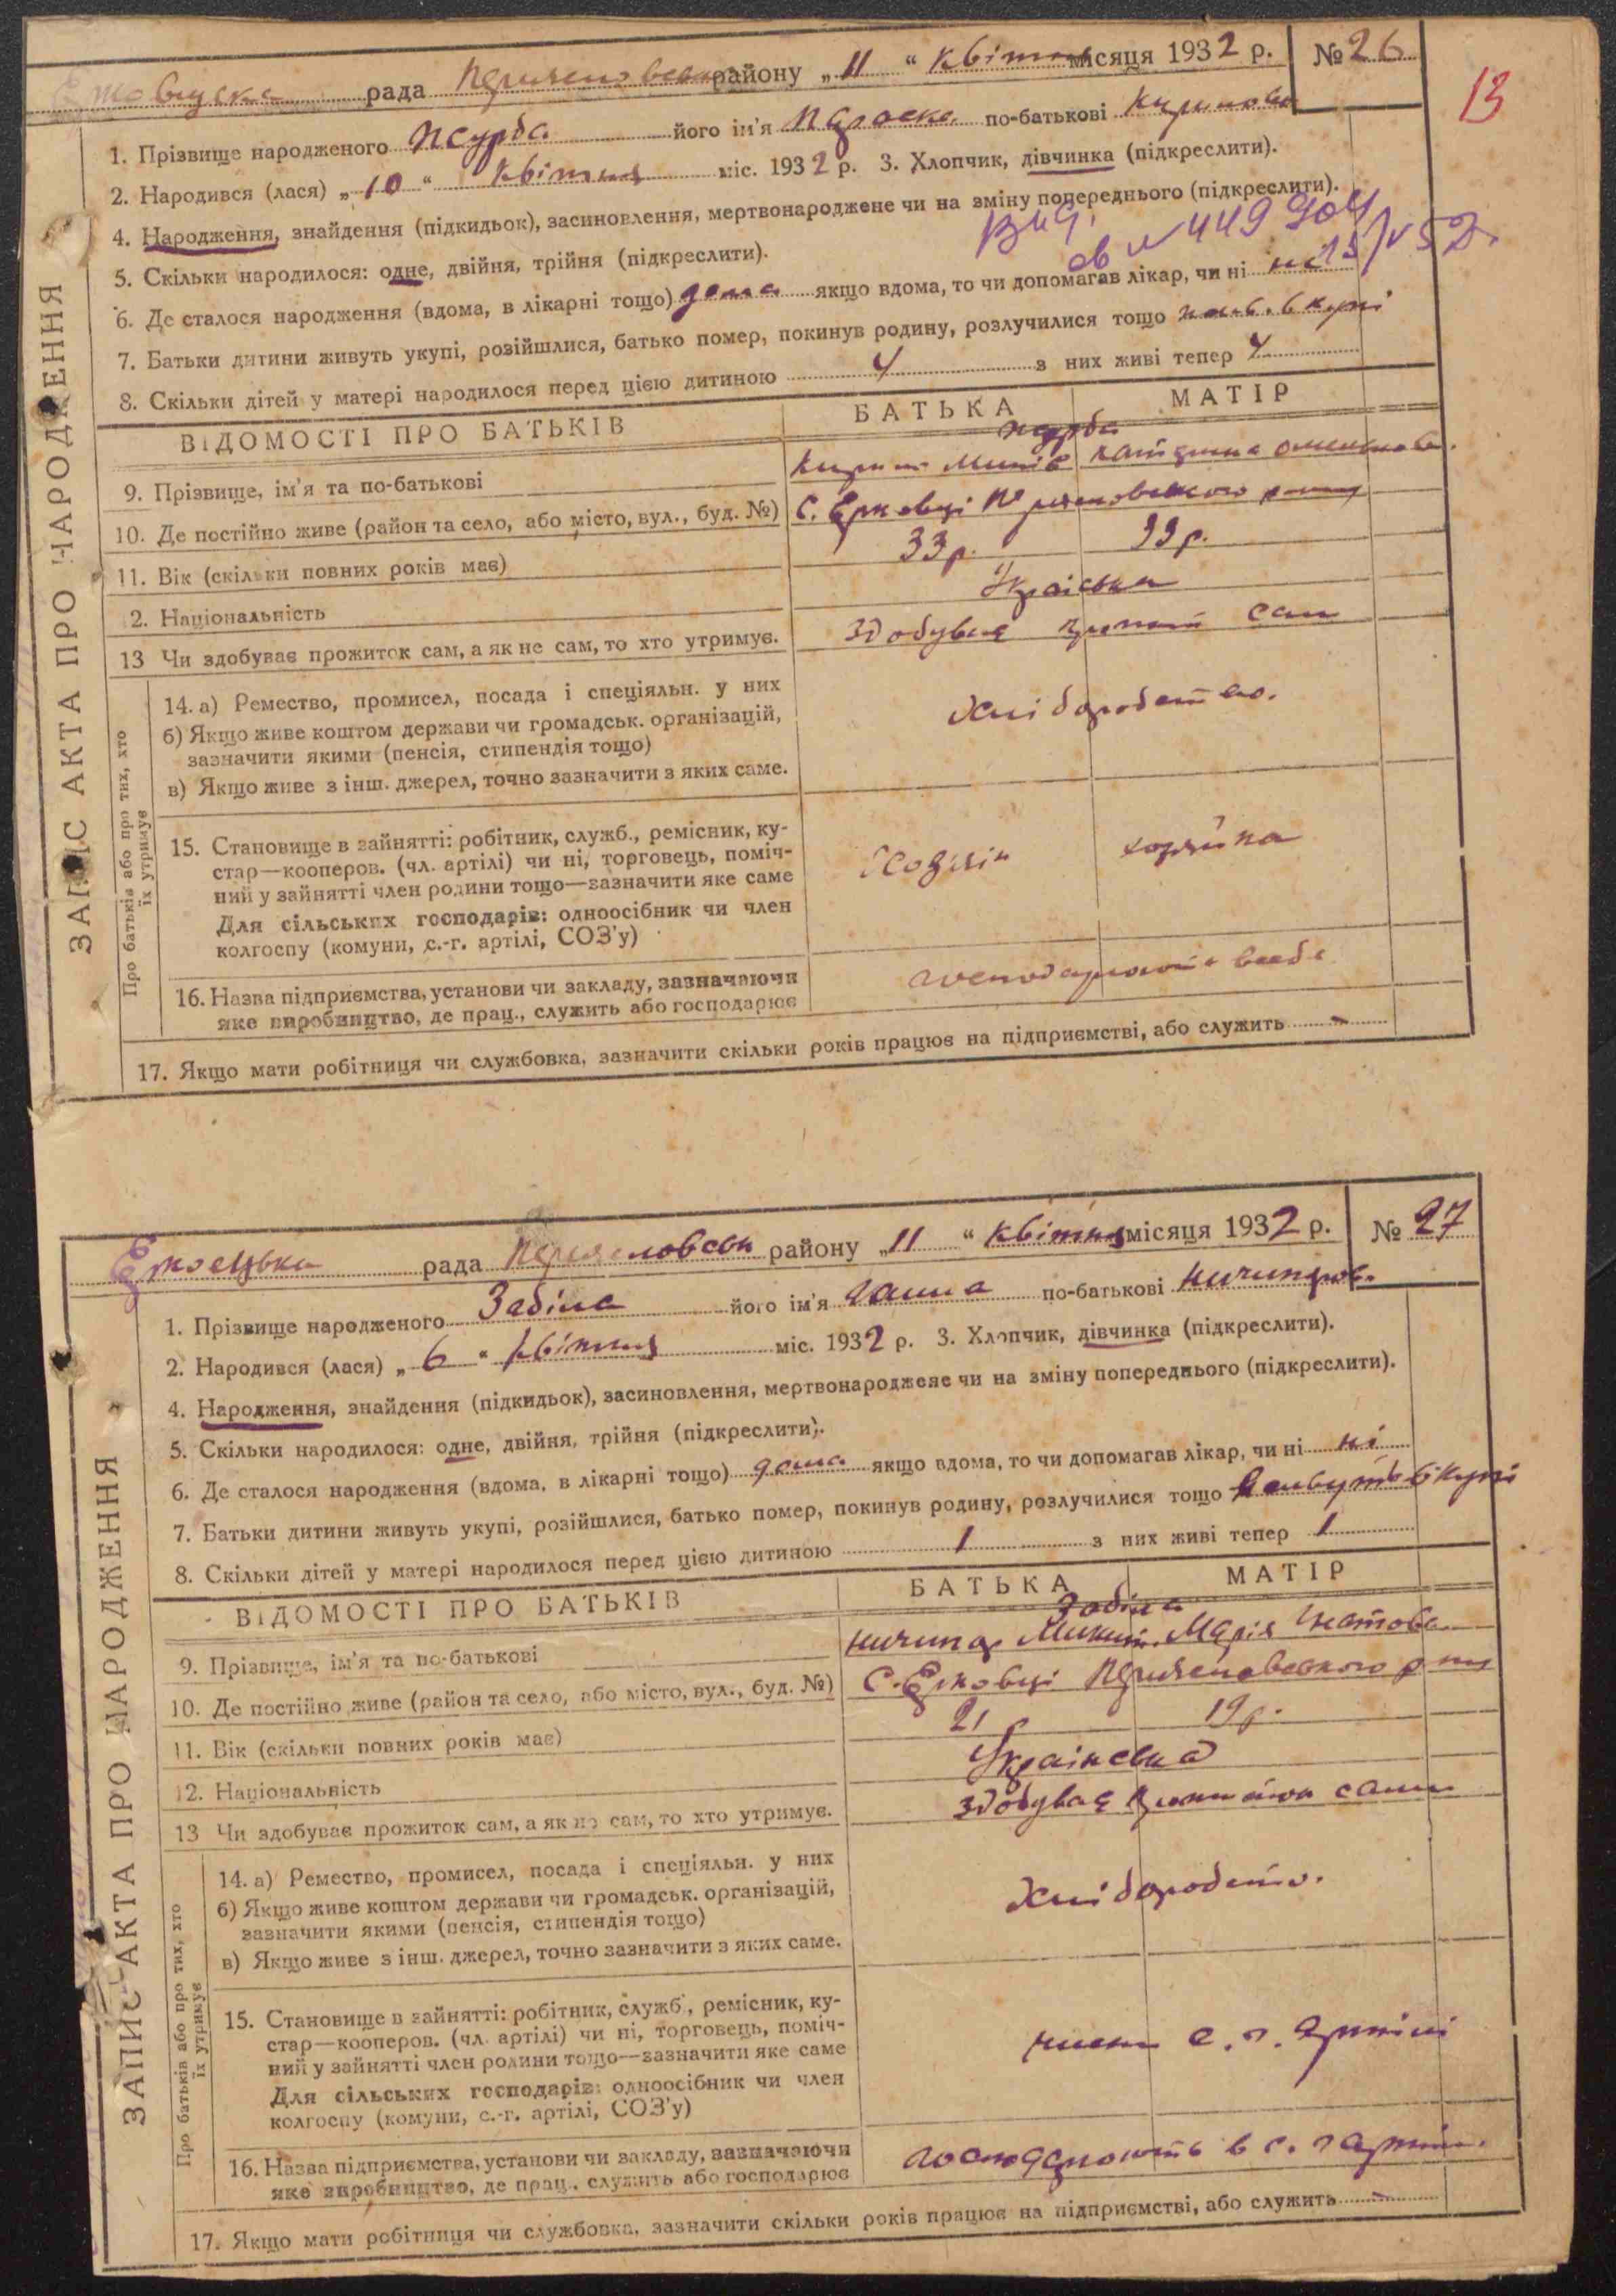 13
рада району „11“ квітня місяця 1932 р. № 26
1. Прізвище народженого його ім'я по-батькові
2. Народився (лася) „10“ квітня міс. 1932 р. 3. Хлопчик, дівчинка (підкреслити).
4. Народження, знайдення (підкидьок), засиновлення, мертвонароджене чи на зміну попереднього (підкреслити).
5. Скільки народилося: одне, двійня, трійня (підкреслити).
6. Де сталося народження (вдома, в лікарні тощо) дома якщо вдома, то чи допомагав лікар, чи ні ні
7. Батьки дитини живуть укупі, розійшлися, батько помер, покинув родину, розлучилися тощо
8. Скільки дітей у матері народилося перед цією дитиною 4 з них живі тепер 4
ВІДОМОСТІ ПРО БАТЬКІВ БАТЬКА МАТІР
9. Прізвище, ім'я та по-батькові
10. Де постійно живе (район та село, або місто, вул., буд. №) с. Ерковці
11. Вік (скільки повних років має) 33 р. 33 р.
2. Національність
13 Чи здобуває прожиток сам, а як не сам, то хто утримує. здобуває сам
Про батьків або про тих, хто їх утримує
14. а) Ремество, промисел, посада і спеціяльн. у них
б) Якщо живе коштом держави чи громадськ. організацій,
зазначити якими (пенсія, стипендія тощо)
в) Якщо живе з інш. джерел, точно зазначити з яких саме.
хліборобство.
15. Становище в зайнятті: робітник, служб., ремісник, ку-
стар—кооперов. (чл. артілі) чи ні, торговець, поміч-
ний у зайнятті член родини тощо—зазначити яке саме
Для сільських господарів: одноосібник чи член
колгоспу (комуни, с.-г. артілі, СОЗ'у)
хозяїн хозяйка
16. Назва підприємства, установи чи закладу, зазначаючи
яке виробництво, де прац., служить або господарює
17. Якщо мати робітниця чи службовка, зазначити скільки років працює на підприємстві, або служить -
ЗАПИС АКТА ПРО НАРОДЖЕННЯ
рада району „11“ квітня місяця 1932 р. № 27
1. Прізвище народженого Забіла його ім'я Ганна по-батькові Ничипоров.
2. Народився (лася) „6“ квітня міс. 1932 р. 3. Хлопчик, дівчинка (підкреслити).
4. Народження, знайдення (підкидьок), засиновлення, мертвонароджене чи на зміну попереднього (підкреслити).
5. Скільки народилося: одне, двійня, трійня (підкреслити).
6. Де сталося народження (вдома, в лікарні тощо) дома якщо вдома, то чи допомагав лікар, чи ні ні
7. Батьки дитини живуть укупі, розійшлися, батько помер, покинув родину, розлучилися тощо
8. Скільки дітей у матері народилося перед цією дитиною 1 з них живі тепер 1
ВІДОМОСТІ ПРО БАТЬКІВ БАТЬКА МАТІР
Забіла
9. Прізвище, ім'я та по-батькові Ничипор Марія
10. Де постійно живе (район та село, або місто, вул., буд. №) с. Ерковці
11. Вік (скільки повних років має) 21 р 19 р.
12. Національність Українська
13 Чи здобуває прожиток сам, а як не сам, то хто утримує. здобуває сами
Про батьків або про тих, хто їх утримує
14. а) Ремество, промисел, посада і спеціяльн. у них
б) Якщо живе коштом держави чи громадськ. організацій,
зазначити якими (пенсія, стипендія тощо)
в) Якщо живе з інш. джерел, точно зазначити з яких саме.
15. Становище в зайнятті: робітник, служб., ремісник, ку-
стар—кооперов. (чл. артілі) чи ні, торговець, поміч-
ний у зайнятті член родини тощо—зазначити яке саме
Для сільських господарів: одноосібник чи член
колгоспу (комуни, с.-г. артілі, СОЗ'у)
члени с. г. артілі
16. Назва підприємства, установи чи закладу, зазначаючи
яке виробництво, де прац., служить або господарює
господарюють в с. г артіли.
17. Якщо мати робітниця чи службовка, зазначити скільки років працює на підприємстві, або служить -
ЗАПИС АКТА ПРО НАРОДЖЕННЯ